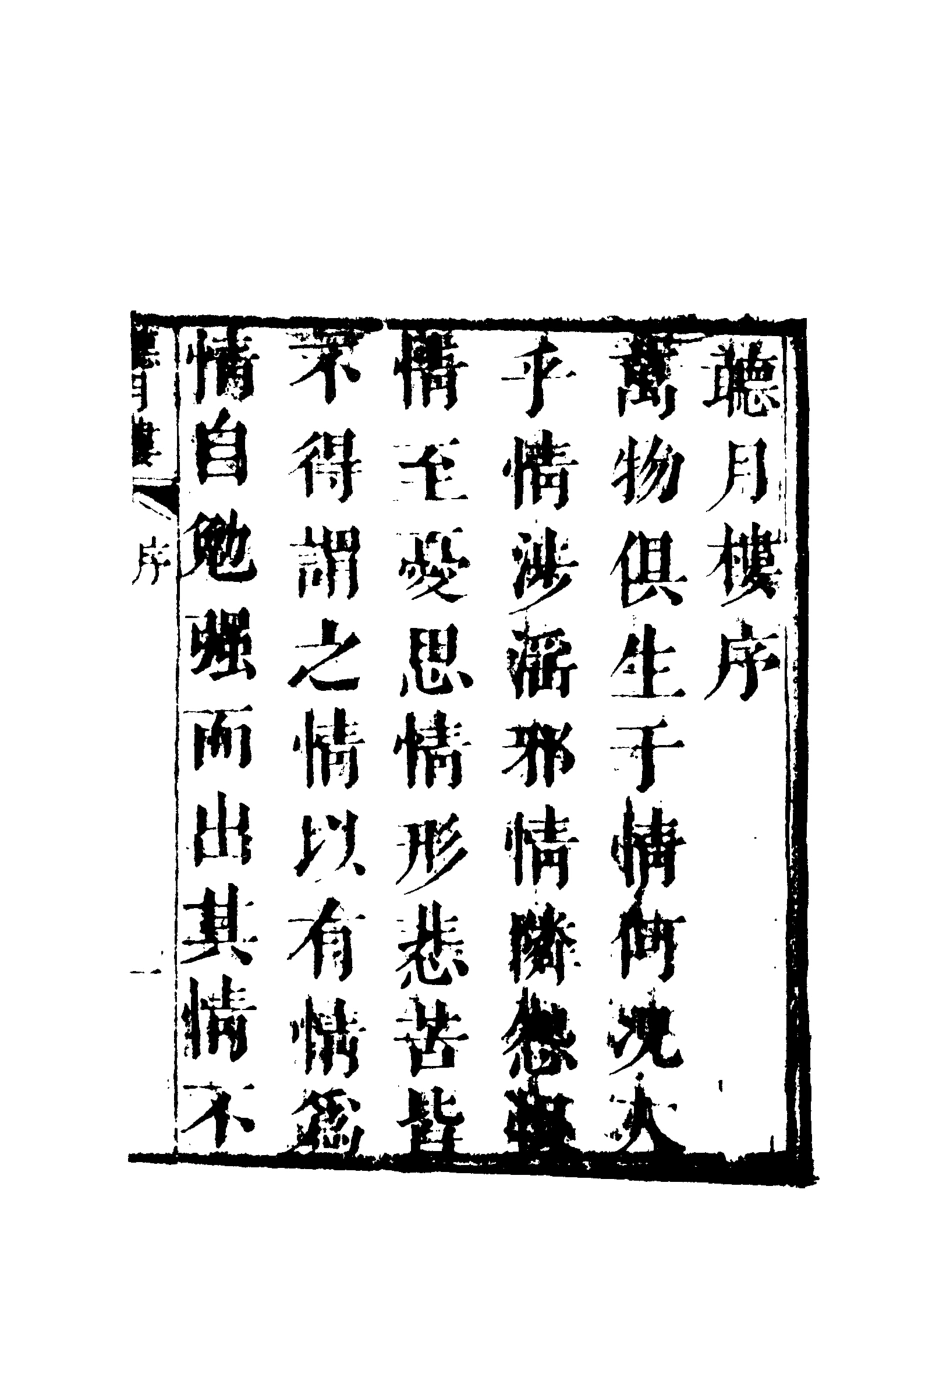 聽月樓序
萬物俱生于情何况人
乎情涉滛邪情隣怨
情至憂思情形悲苦皆
不得謂之情以有情爲
情自勉强而出其情不
聽月樓
序
一